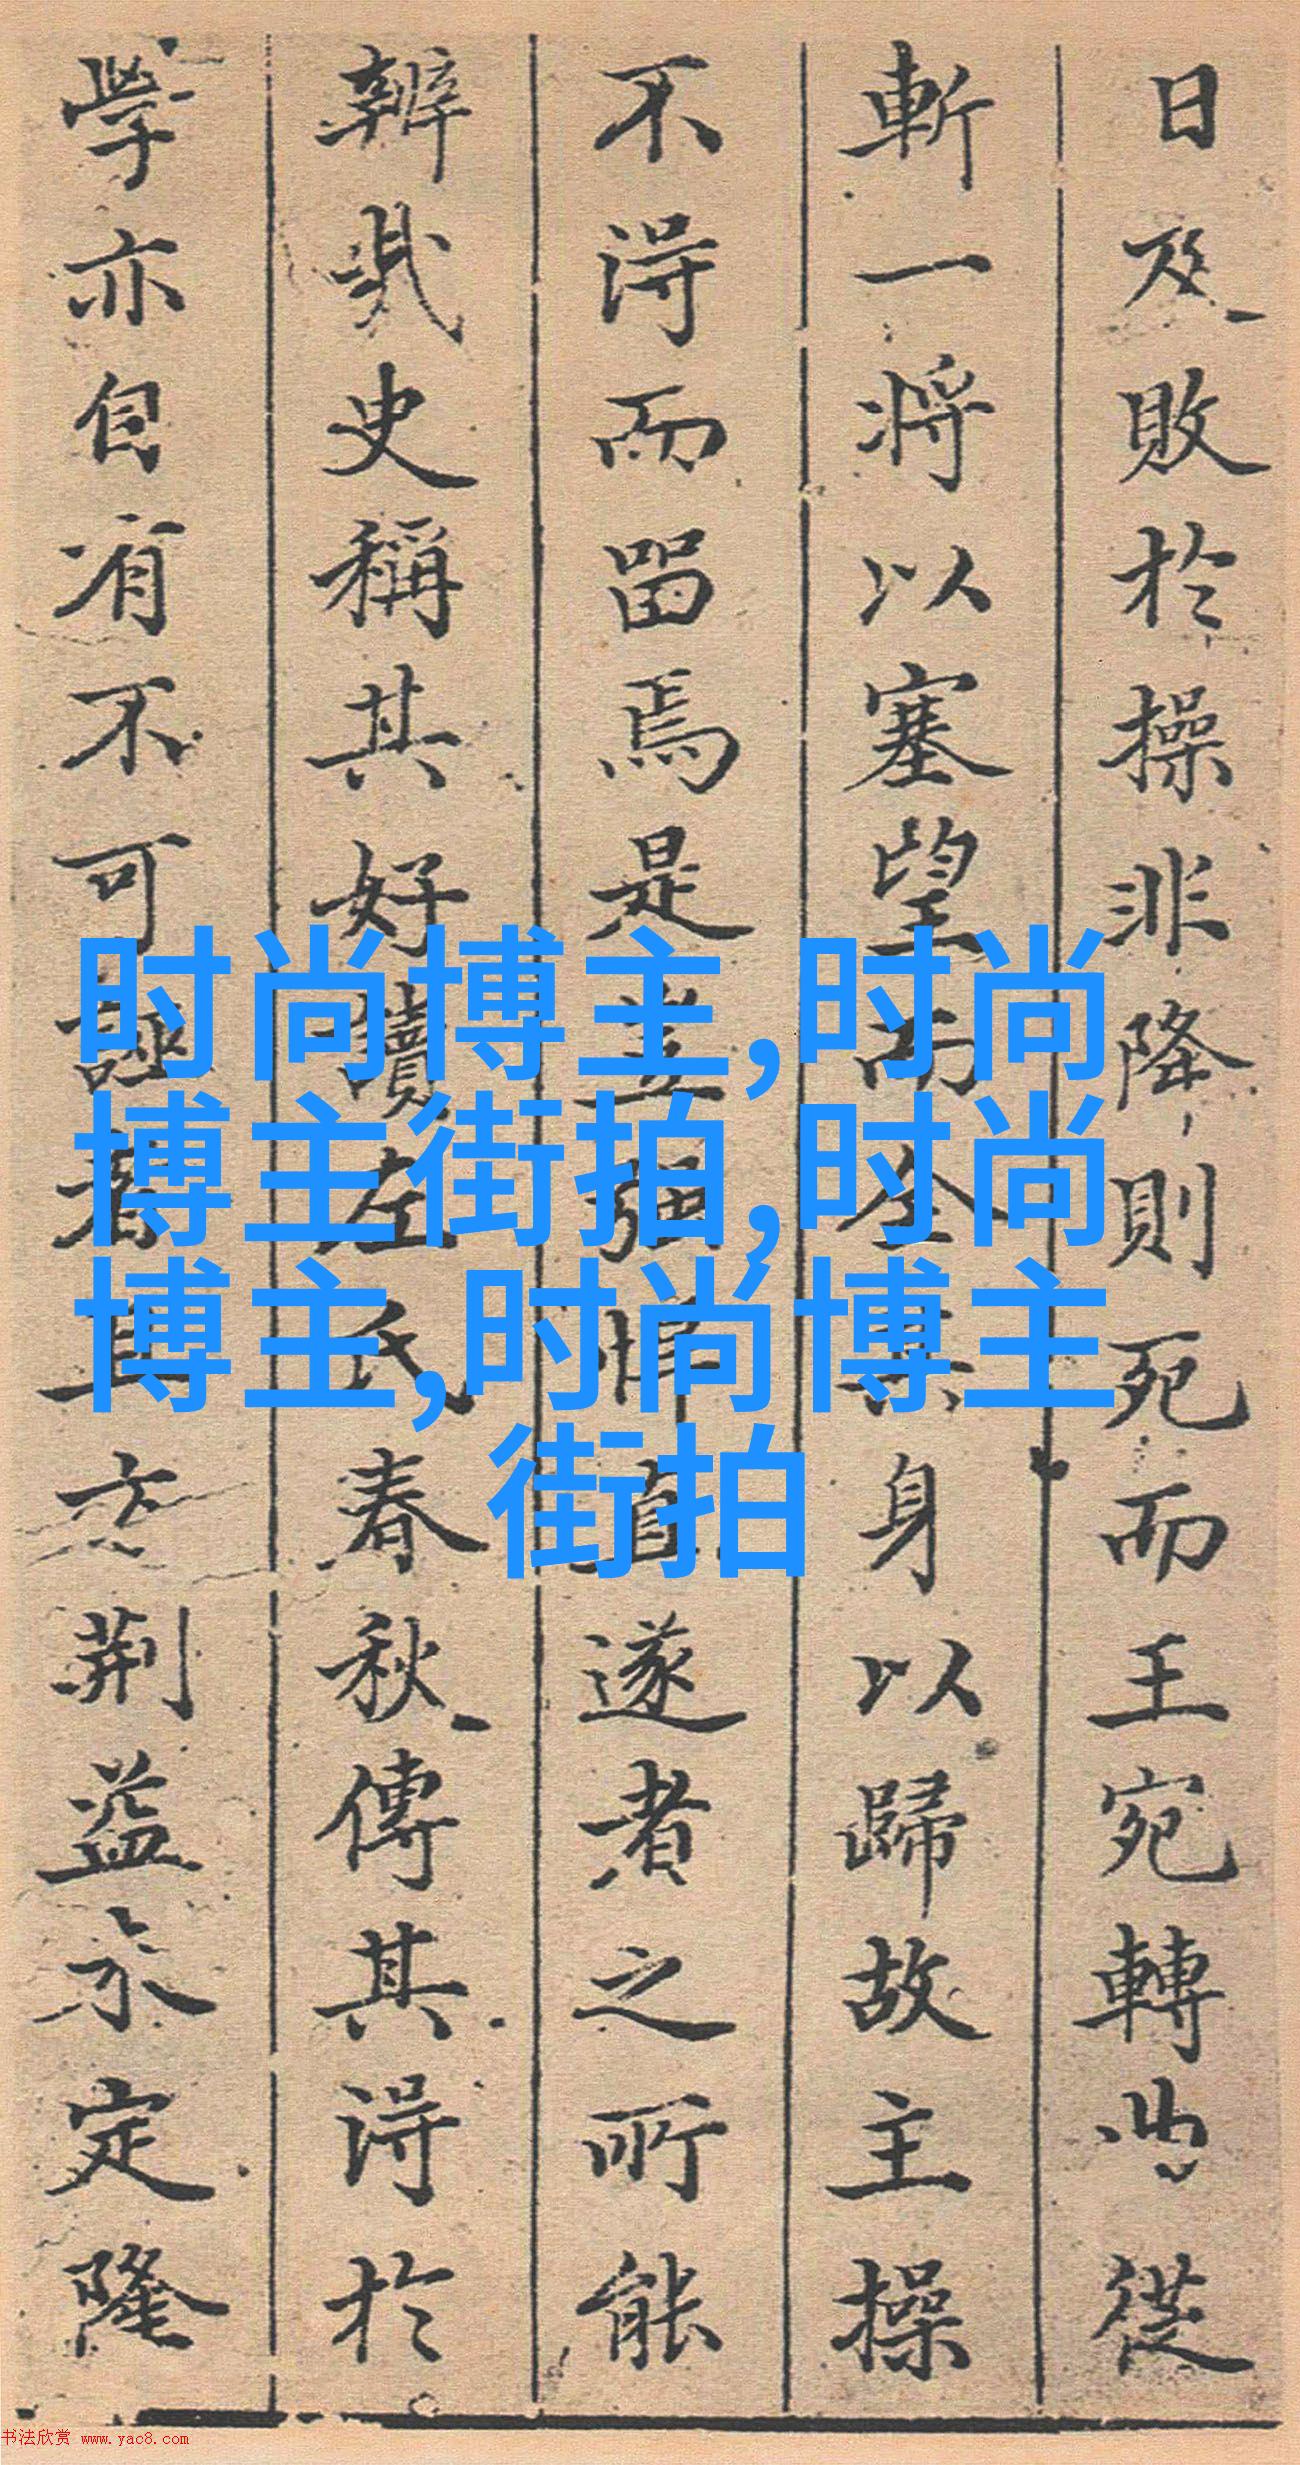 日及敗於操非降則死而王宛轉曲從
斬一將以塞望而全其身以歸故主操
不得而留焉是豈强悍直遂者之所能
辨哉史稱其好讀左氏春秋傳其得於
學亦自有不可誣者且立荆益未定隆
时尚博主,时尚
博主街拍,时尚
博主,时尚博主
街拍
书法欣赏 www.yac8.com